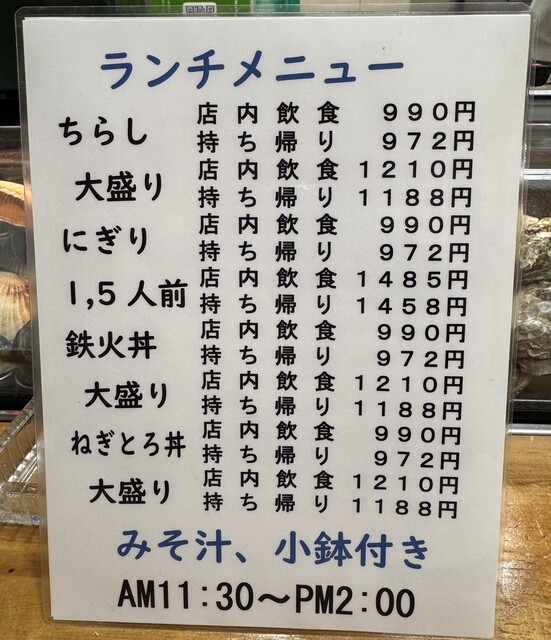 ランチメニュー
ちらし 店内飲食 990円
持ち帰り 972円
大盛り 店内飲食 1210円
持ち帰り 1188円
にぎり 店内飲食 990円
持ち帰り 972円
1,5人前 店内飲食 1485円
持ち帰り 1458円
鉄火丼 店内飲食 990円
持ち帰り 972円
大盛り 店内飲食 1210円
持ち帰り 1188円
ねぎとろ丼 店内飲食 990円
持ち帰り 972円
大盛り 店内飲食 1210円
持ち帰り 1188円
みそ汁、小鉢付き
AM11:30～PM2:00